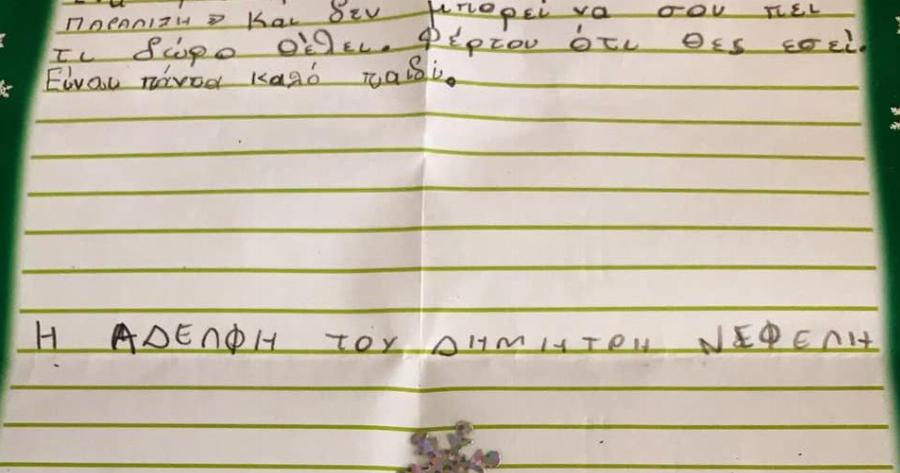 παραλιση» Και δεν μπορεί να σου πει
τι δώρο θέλει. Φέρτου ότι θες εσεί.
Είναι πάντα καλό παιδί.
Η ΑΔΕΛΦΗ ΤΟΥ ΔΗΜΗΤΡΗ ΝΕΦΕΛΗ